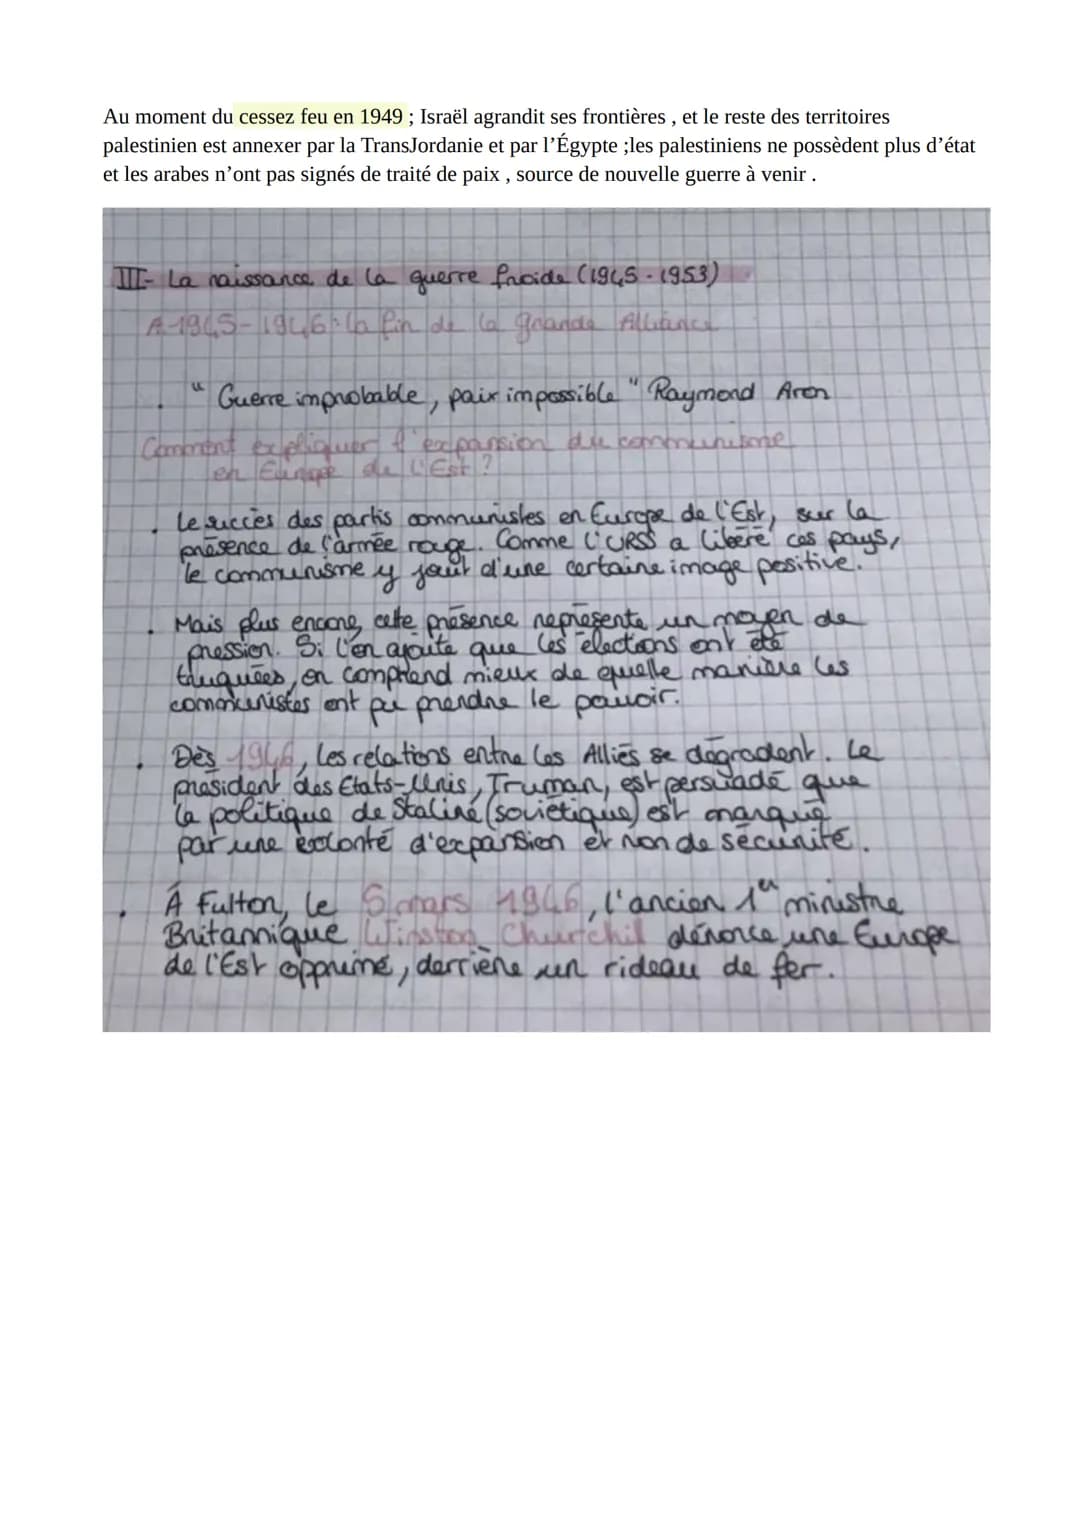 Au moment du cessez feu en 1949 ; Israël agrandit ses frontières , et le reste des territoires
palestinien est annexer par la TransJordanie et par l'Égypte ;les palestiniens ne possèdent plus d'état
et les arabes n'ont pas signés de traité de paix , source de nouvelle guerre à venir .
III- La naissance de la guerre froide (1945-1953)
A-1945-1946: la fin de la grande Alliance
. " Guerre improbable, paix impossible " Raymond Aron
Comment expliquer l'expansion du communisme
en Europe de l'Est ?
. Le succès des partis communistes en Europe de l'Est, sur la
présence de l'armée rouge. Comme l'URSS a libéré ces pays,
le communisme y jouit d'une certaine image positive.
. Mais plus encore, cette présence représente un moyen de
pression. Si l'on ajoute que les élections ont été
truquées, on comprend mieux de quelle manière les
communistes ont pu prendre le pouvoir.
. Dès 1946, les relations entre les Alliés se dégradent. Le
président des Etats-Unis, Truman, est persuadé que
la politique de Staline (soviétique) est marqué
par une volonté d'expansion et non de sécurité.
. À Fulton, le 5 mars 1946, l'ancien 1er ministre
Britannique Winston Churchil dénonce une Europe
de l'Est opprimé, derrière un rideau de fer.